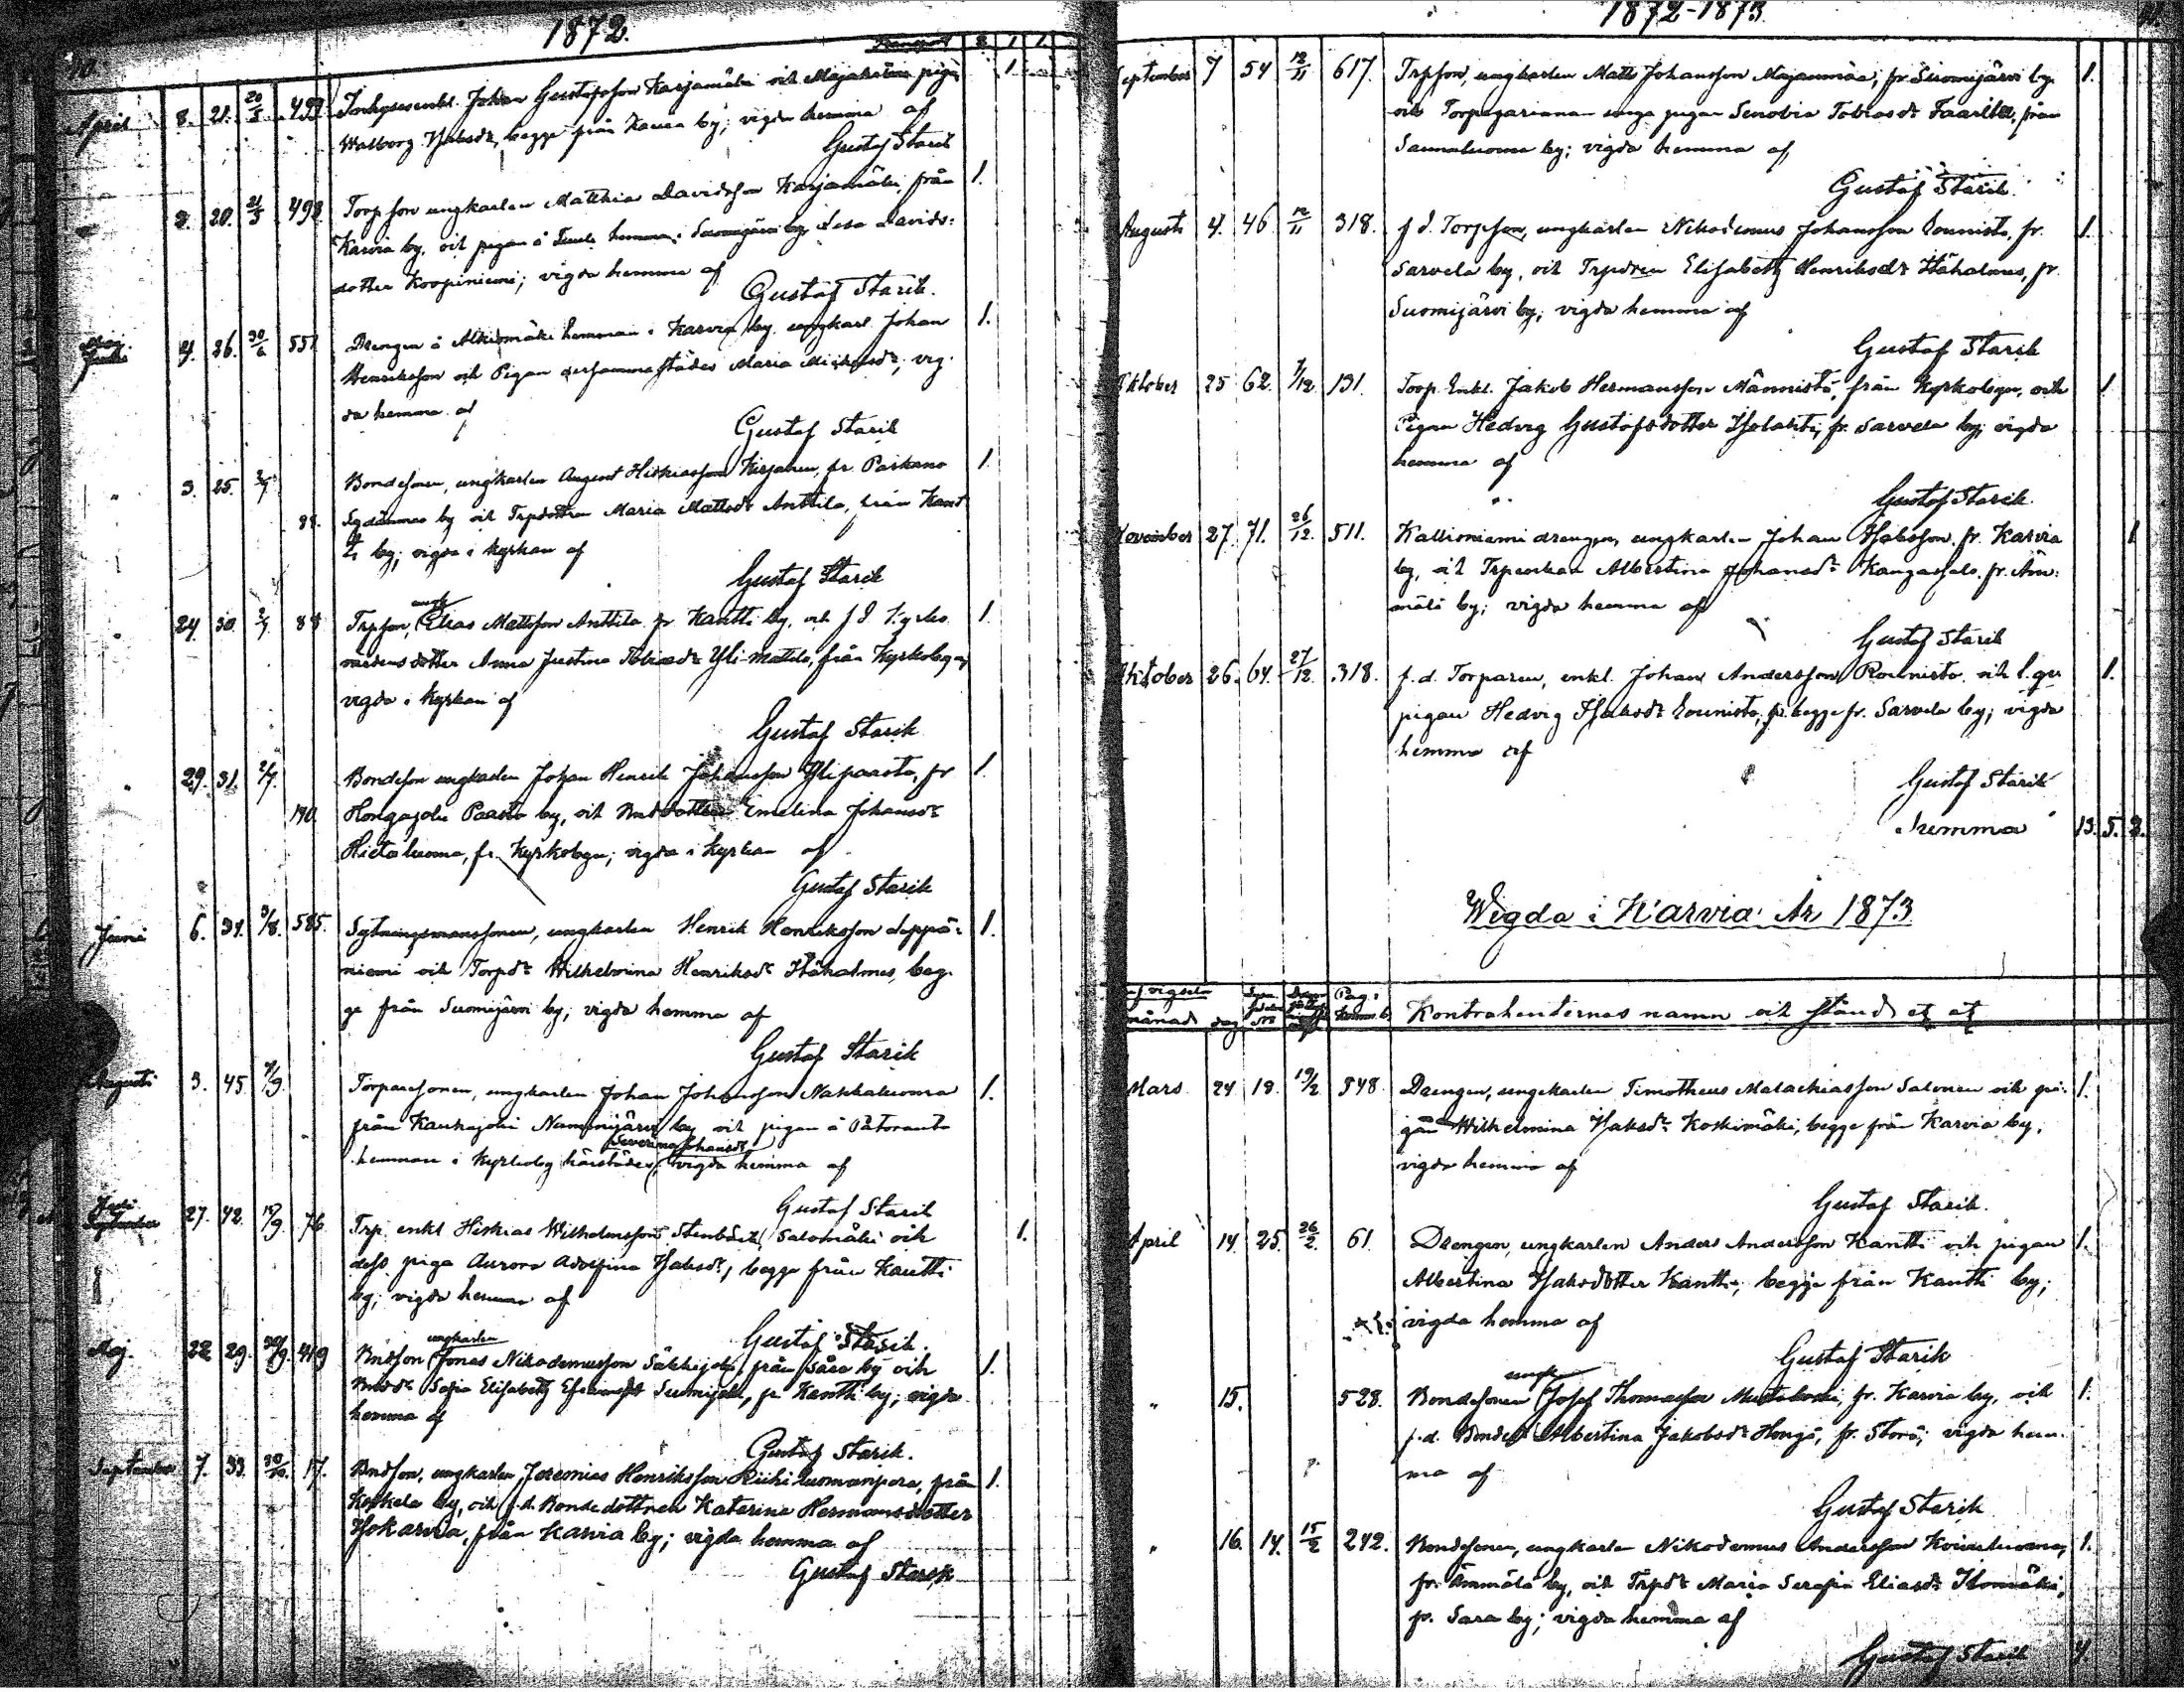 1872.
Transport 2 1 1
April 8. 21. 20/5 499 Inhysesenkl. Johan Gustafsson Karjamäki och Majakoski pigan 1
Walborg Isaksdr, begge från Kaura by; vigda hemma af
Gustaf Starik
8. 20. 21/5 498 Torpson ungkarlen Matthias Davidsson Karjamäki, från 1.
Karvia by, och pigan å hemman i Suomijärvi by Lesa Davids:
dotter Koopiniemi; vigda hemma af
Gustaf Starik.
Maj. 4. 36. 30/6 551 Drengen å Alkiomäki hemman i Karvia by ungkarl. Johan 1.
Henriksson och Pigan dersammastädes Maria Michelsdr, vig-
da hemma af
Gustaf Starik
" 3. 25. 2/7 Bondesonen, ungkarlen August Hiskiasson Kirjanen, fr. Parkano 1
88. Sydänmaa by och Trpdottren Maria Mattsdr Anttila, från Kant-
ti by; vigda i kyrkan af
Gustaf Starik
" 24 30. 2/7 88 Trpson, ungk Elias Mattsson Anttila fr Kantti by, och f d Kyrko- 1.
värdens dotter Anna Justina Tobiasdr Yli-Mattila, från Kyrkobyn;
vigda i kyrkan af
Gustaf Starik
" 29. 31. 2/7. Bondeson ungkarlen Johan Henrik Johansson Ylipaasto, fr 1.
190. Hongajoki Paasto by, och Bnddottren Emelina Johansdr
Hietaluoma, fr. Kyrkobyn; vigda i kyrkan af
Gustaf Starik
Juni 6. 34. 3/8. 585. Sytningsmanssonen, ungkarlen Henrik Henriksson Leppä- 1.
niemi och Torpdr Wilhelmina Henriksdr Hähalmes, beg-
ge från Suomijärvi by; vigda hemma af
Gustaf Starik
Augusti 3. 45. /9. Torparesonen, ungkarlen Johan Johansson Nahkaluoma 1.
från Kauhajoki Nummijärvi by och pigan å Pätoranta
hemman i Kyrkoby härstädes, Severina Johansdr vigda hemma af
Gustaf Starik
Juli 27. 42. /9. 76 Trp. enkl Hiskias Wilhelmsson Stenbäck Salomäki och 1.
dess piga Aurora Adolfina Isaksdr, begge från Kantti
by; vigda hemma af
Gustaf Starik.
Maj. 22 29. 30/9. 419 Bndson ungkarlen Jonas Nikodemusson Säkkijoki, från Sara by och 1.
Bnddr Sofia Elisabeth Efraimsdr Sumijoki, fr Kantti by; vigda
hemma af
Gustaf Starik.
September 7. 33. 30/10. 17. Bndson, ungkarlen Jeremias Henriksson Riihiluomanpera, från 1.
Koskela by, och f.d. Bondedottren Katarina Hermansdotter
Isokarvia, från Karvia by; vigda hemma af
Gustaf Starik
1872-1873.
September 7 54 12/11 617. Trpson, ungkarlen Matts Johansson Majaumäa, fr. Suomijärvi by. 1.
och Torpigarinnan unga pigan Senobia Tobiasdr Faarilla, från
Saunaluoma by; vigda hemma af,
Gustaf Starik.
Augusti 4. 46. 12/11 318. f d. Torpson, ungkarlen Nikodemus Johansson Rounisto, fr. 1.
Sarvela by, och Trpdren Elisabeth Henriksdr Hähalmes, fr.
Suomijärvi by; vigda hemma af
Gustaf Starik
Oktober 25 62. 1/12 131. Torp. Enkl. Jakob Hermansson Männistö, från Kyrkobyn, och 1
Pigan Hedvig Gustafsdotter Isolahti, fr. Sarvela by; vigda
hemma af
Gustaf Starik.
November 27. 71. 26/12. 511. Kallioniemi drengen, ungkarlen Johan Isaksson fr. Karvia 1
by, och Trpenkan Albertina Johansdr Kangassalo, fr. Äm-
mälä by; vigda hemma af
Gustaf Starik
Oktober 26. 64. 27/12. 318. f. d. Torparen, enkl. Johan Andersson Rounisto och l. qv. 1.
pigan Hedvig Isaksdr Rounisto, begge fr. Sarvela by; vigda
hemma af
Gustaf Starik
Summa 13. 5. 2.
Wigda i Karvia År 1873.
af vigseln
månad dag Pag: i Kontrahenternas namn och stånd et ct
Mars 24 18. 19/2 548. Drengen, ungkarlen Timotheus Malachiasson Salonen och pi- 1.
gan Wilhelmina Isaksdr Koskimäki, begge från Karvia by.
vigda hemma af
Gustaf Starik.
April 14. 25. 26/2. 61. Drengen, ungkarlen Anders Andersson Kantti och pigan 1.
Albertina Isaksdotter Kantti, begge från Kantti by;
vigda hemma af
Gustaf Starik
" 15. 528. Bondesonen ungk Josef Thomasson Mustaluoma, fr. Karvia by, och 1.
f.d. Bonded Albertina Jakobsdr Hongo, fr. Storå; vigda hem-
ma af
Gustaf Starik
" 16. 14. 15/2 242. Bondesonen, ungkarlen Nikodemus Andersson Koivuluoma, 1.
fr. Ämmälä by, och Trpdr Maria Serafia Eliasdr Ilomäki,
fr. Sara by; vigda hemma af
Gustaf Starik 4.